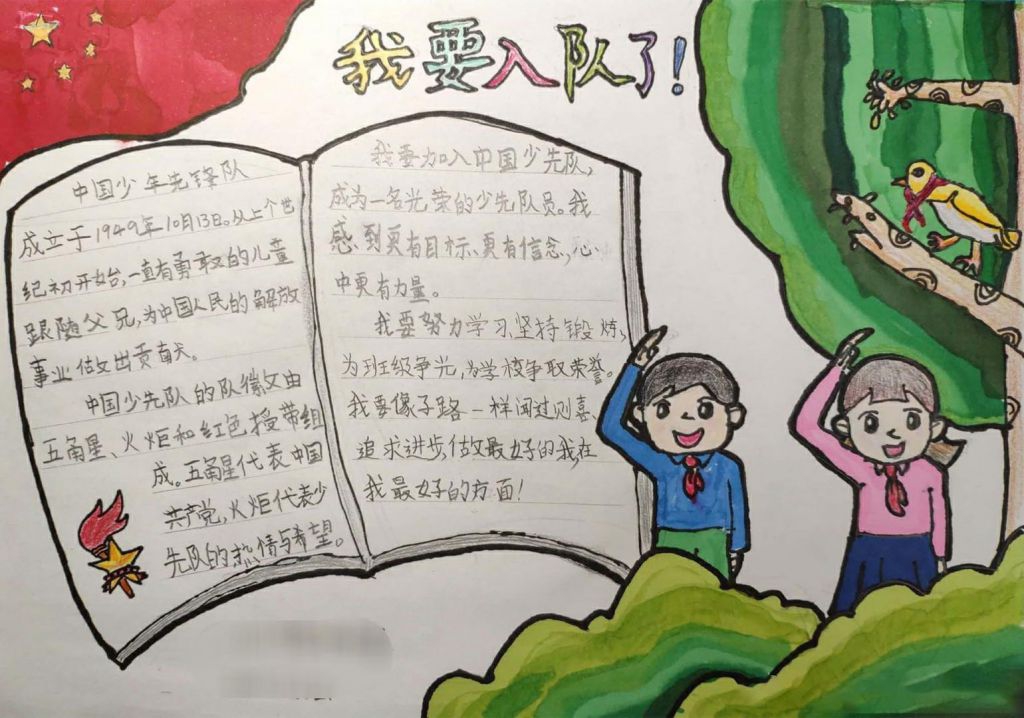 我要入队了!
中国少年先锋队
成立于1949年10月13日。从上个世
纪初开始,一直有勇敢的儿童
跟随父兄,为中国人民的解放
事业做出贡献。
中国少先队的队徽由
五角星、火炬和红色授带组
成。五角星代表中国
共产党,火炬代表少
先队的热情与希望。
我要加入中国少先队,
成为一名光荣的少先队员。我
感到更有目标、更有信念,心
中更有力量。
我要努力学习,坚持锻炼,
为班级争光,为学校争取荣誉。
我要像子路一样闻过则喜,
追求进步,做最好的我,在
我最好的方面!